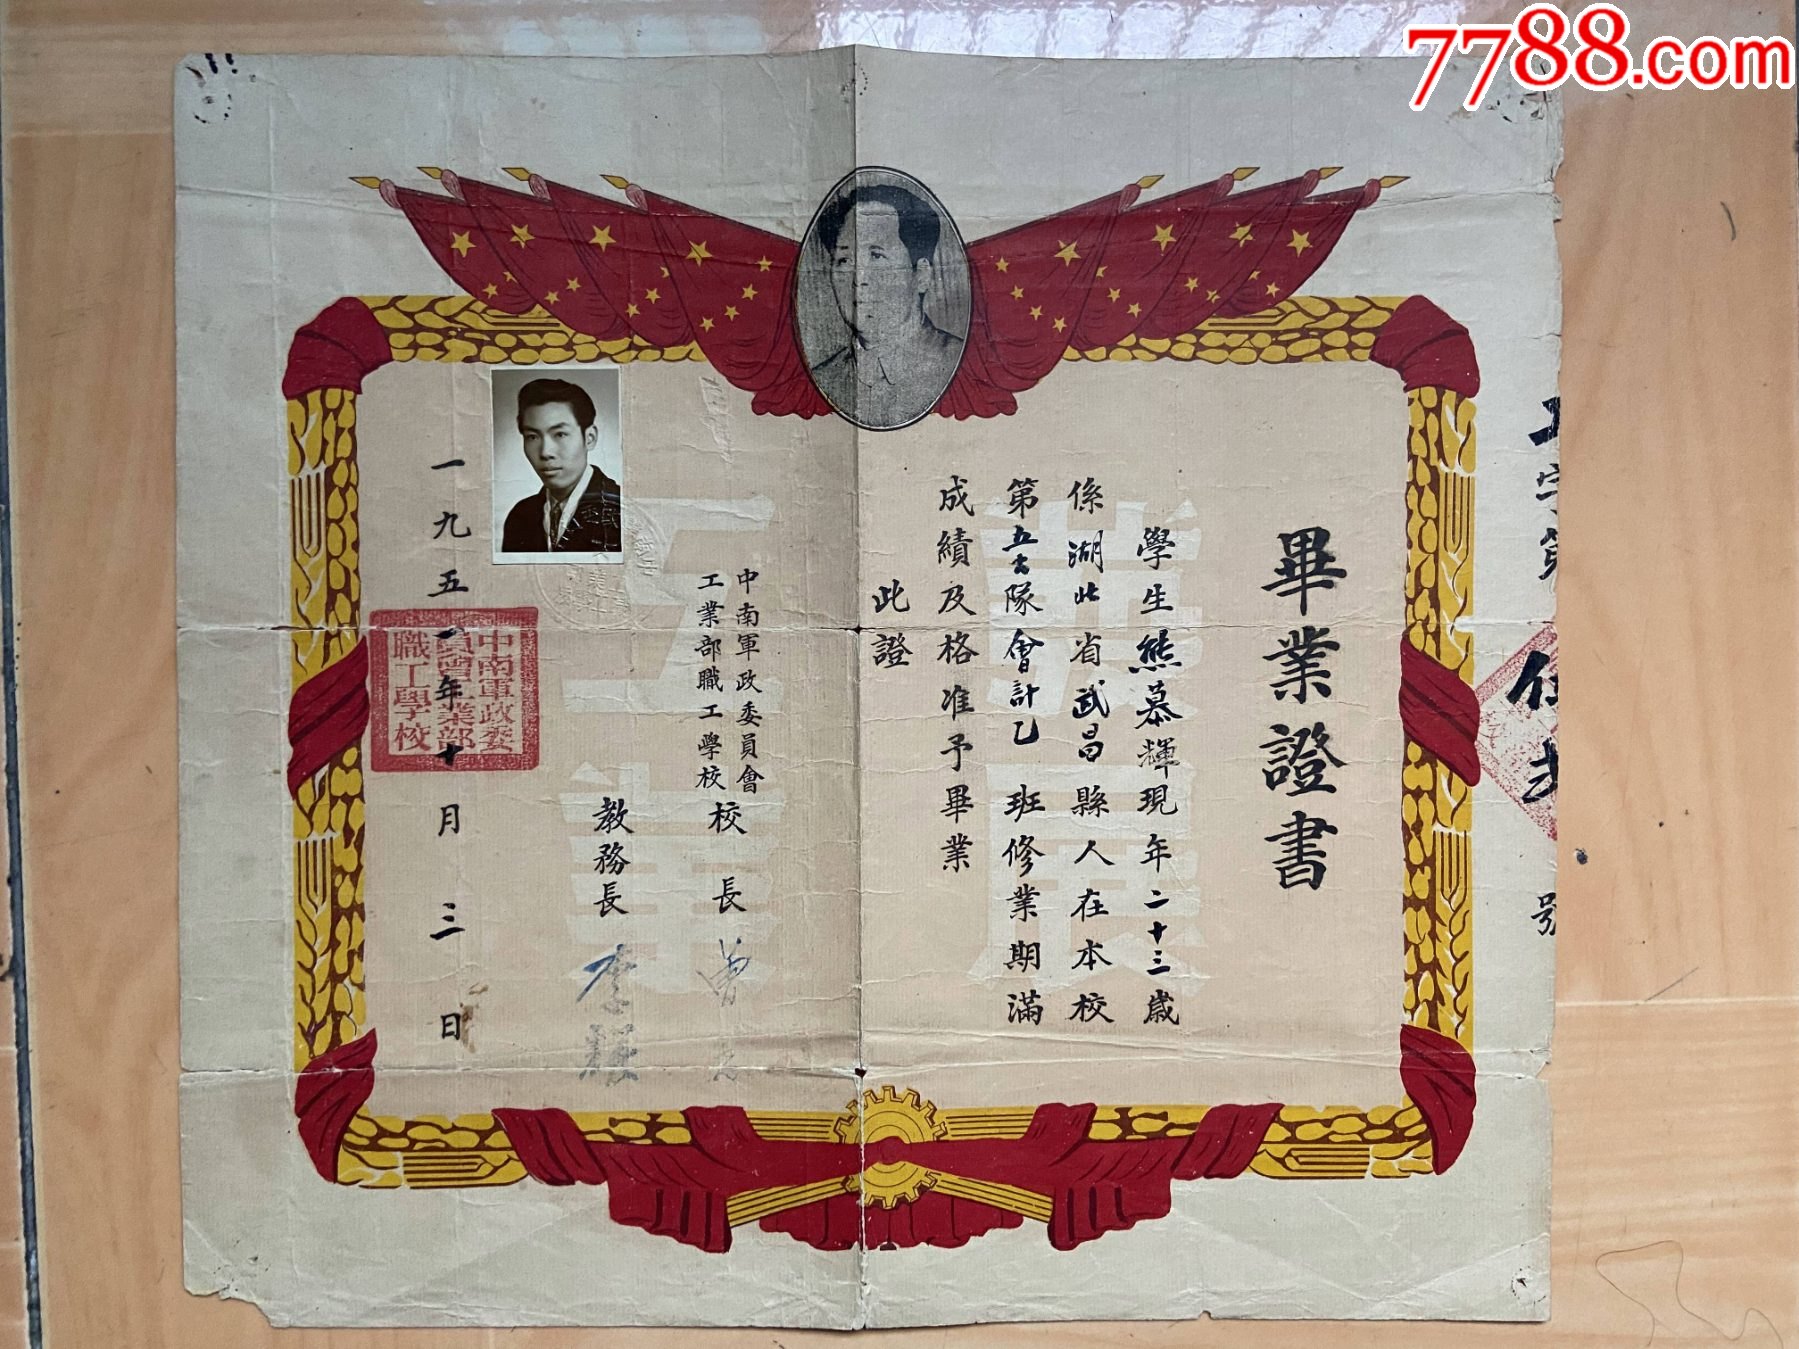 7788.com
工字第伍 號
畢業證書
學生熊慕輝現年二十三歲
係湖北省武昌縣人在本校
第五 隊會計乙班修業期滿
成績及格准予畢業
此證
中南軍政委員會
工業部職工學校
校長 曾
教務長 李
一九五一年十月三日
中南軍政委
員會工業部
職工學校
發展
工業